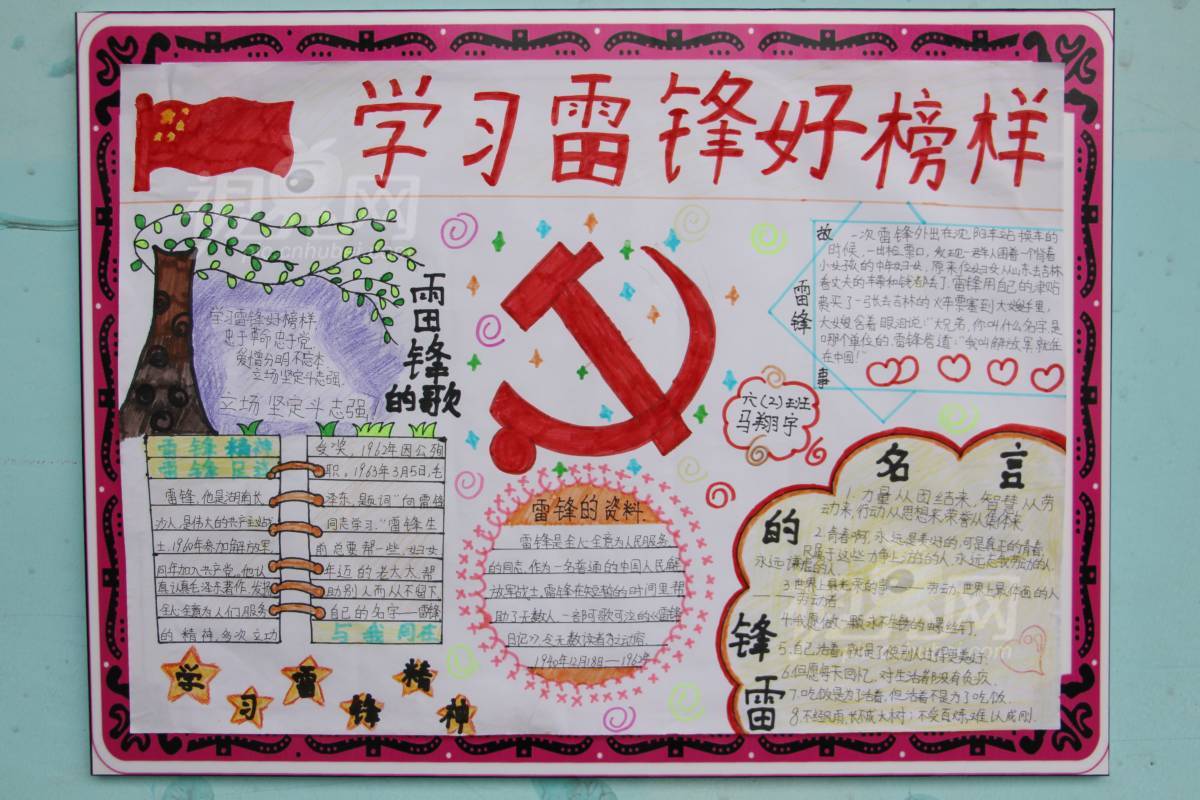 学习雷锋好榜样
视界网
www.cnhubei.com
学习雷锋好榜样
忠于革命忠于党
爱憎分明不忘本
立场坚定斗志强
立场坚定斗志强!
雷锋
的歌
故
雷锋
事
一次雷锋外出在沈阳车站换车的
时候,一出检票口,发现一群人围着一个背着
小女孩的中年妇女,原来位妇女从山东去吉林
看丈夫的车票和钱都去了.雷锋用自己的津贴
费买了一张去吉林的火车票塞到大嫂手里,
大嫂含着眼泪说:“大兄弟,你叫什么名字是
哪个单位的.雷锋答道:“我叫解放军就住
在中国!”
六(2)班
马翔宇
雷锋精神
雷锋,他是湖南长
沙人,是伟大的共产主义战
士.1960年参加解放军
同年加入共产党,他认
真认真毛泽东著作,发扬
全心全意为人们服务
的精神,多次立功
受奖,1962年因公殉
职,1963年3月5日,毛
泽东,题词“向雷锋
同志学习.”雷锋生
前总要帮一些妇女
年迈的老大大,帮
助别人而从不留下
自己的名字——雷锋
与我同在
雷锋的资料.
雷锋是全心全意为人民服务
的同志,作为一名普通的中国人民解
放军战士,雷锋在短暂的时间里帮
助了无数人,一部可歌可泣的《雷锋
日记》令无数读者为之动容.
1940年12月18日—1962年
名言
的
锋
雷
1.力量从团结来,智慧从劳
动来,行动从思想来,荣誉从集体来
2.青春啊,永远是美好的,可是真正的青春,
只属于这些力争上游的人,永远忘我劳动的人
永远谦虚的人.
3.世界上最光荣的事——劳动,世界上最体面的人
——劳动者.
4.我愿做一颗永不生锈的螺丝钉.
5.自己活着,就是了使别人过得更美好.
6.但愿每天回忆,对生活都没有负疚.
7.吃饭是为了活着,但活着不是为了吃饭.
8.不经风雨,长不成大树;不受百炼,难以成刚.
学习雷锋精神